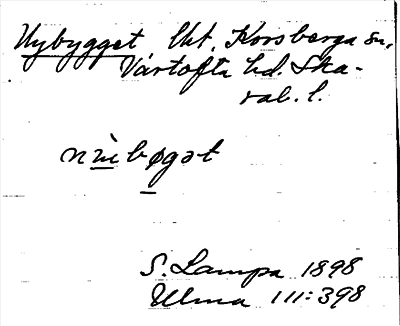 Nybygget, lht. Korsberga sn,
Vartofta hd. Ska-
rab. l.
nỳbøgət
S. Lampa 1898
Ulma 111:398